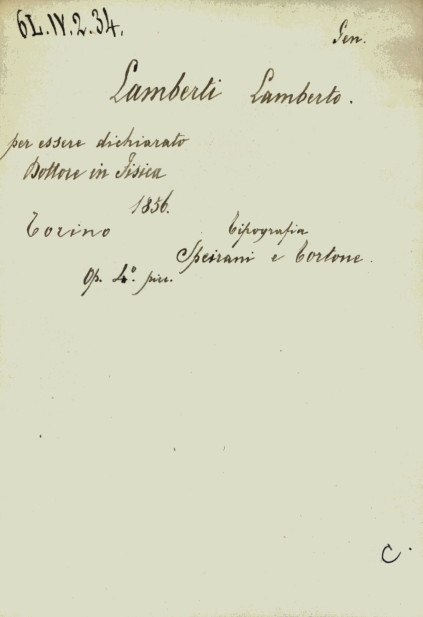 6L.IV.2.34.
Gen.
Lamberti Lamberto.
per essere dichiarato
Dottore in Fisica
1856.
Torino Tipografia
Speirani e Tortone.
Op. 4º. picc.
C.